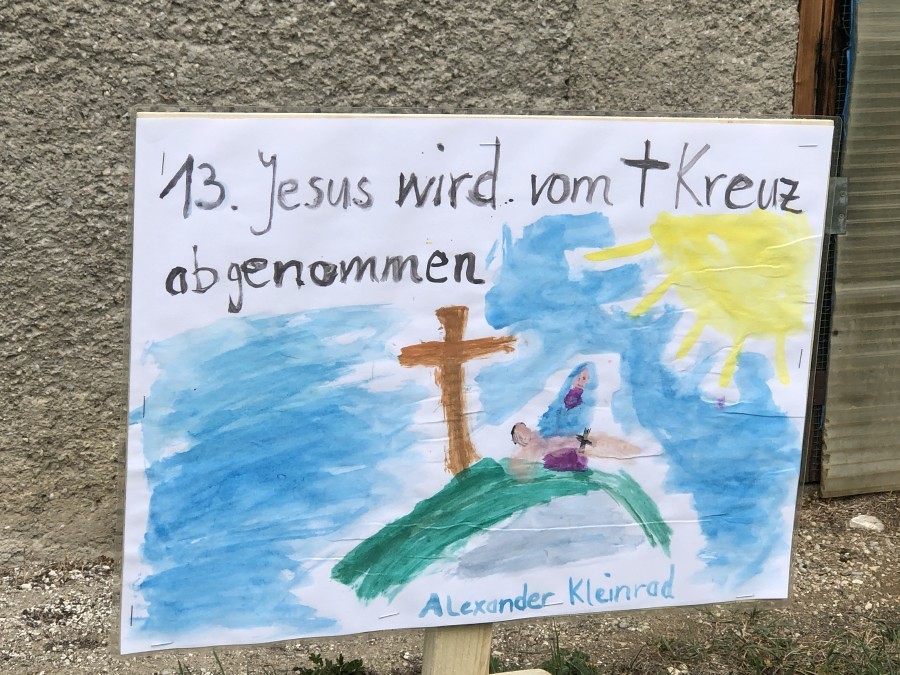 13. Jesus wird vom † Kreuz
abgenommen
Alexander Kleinrad